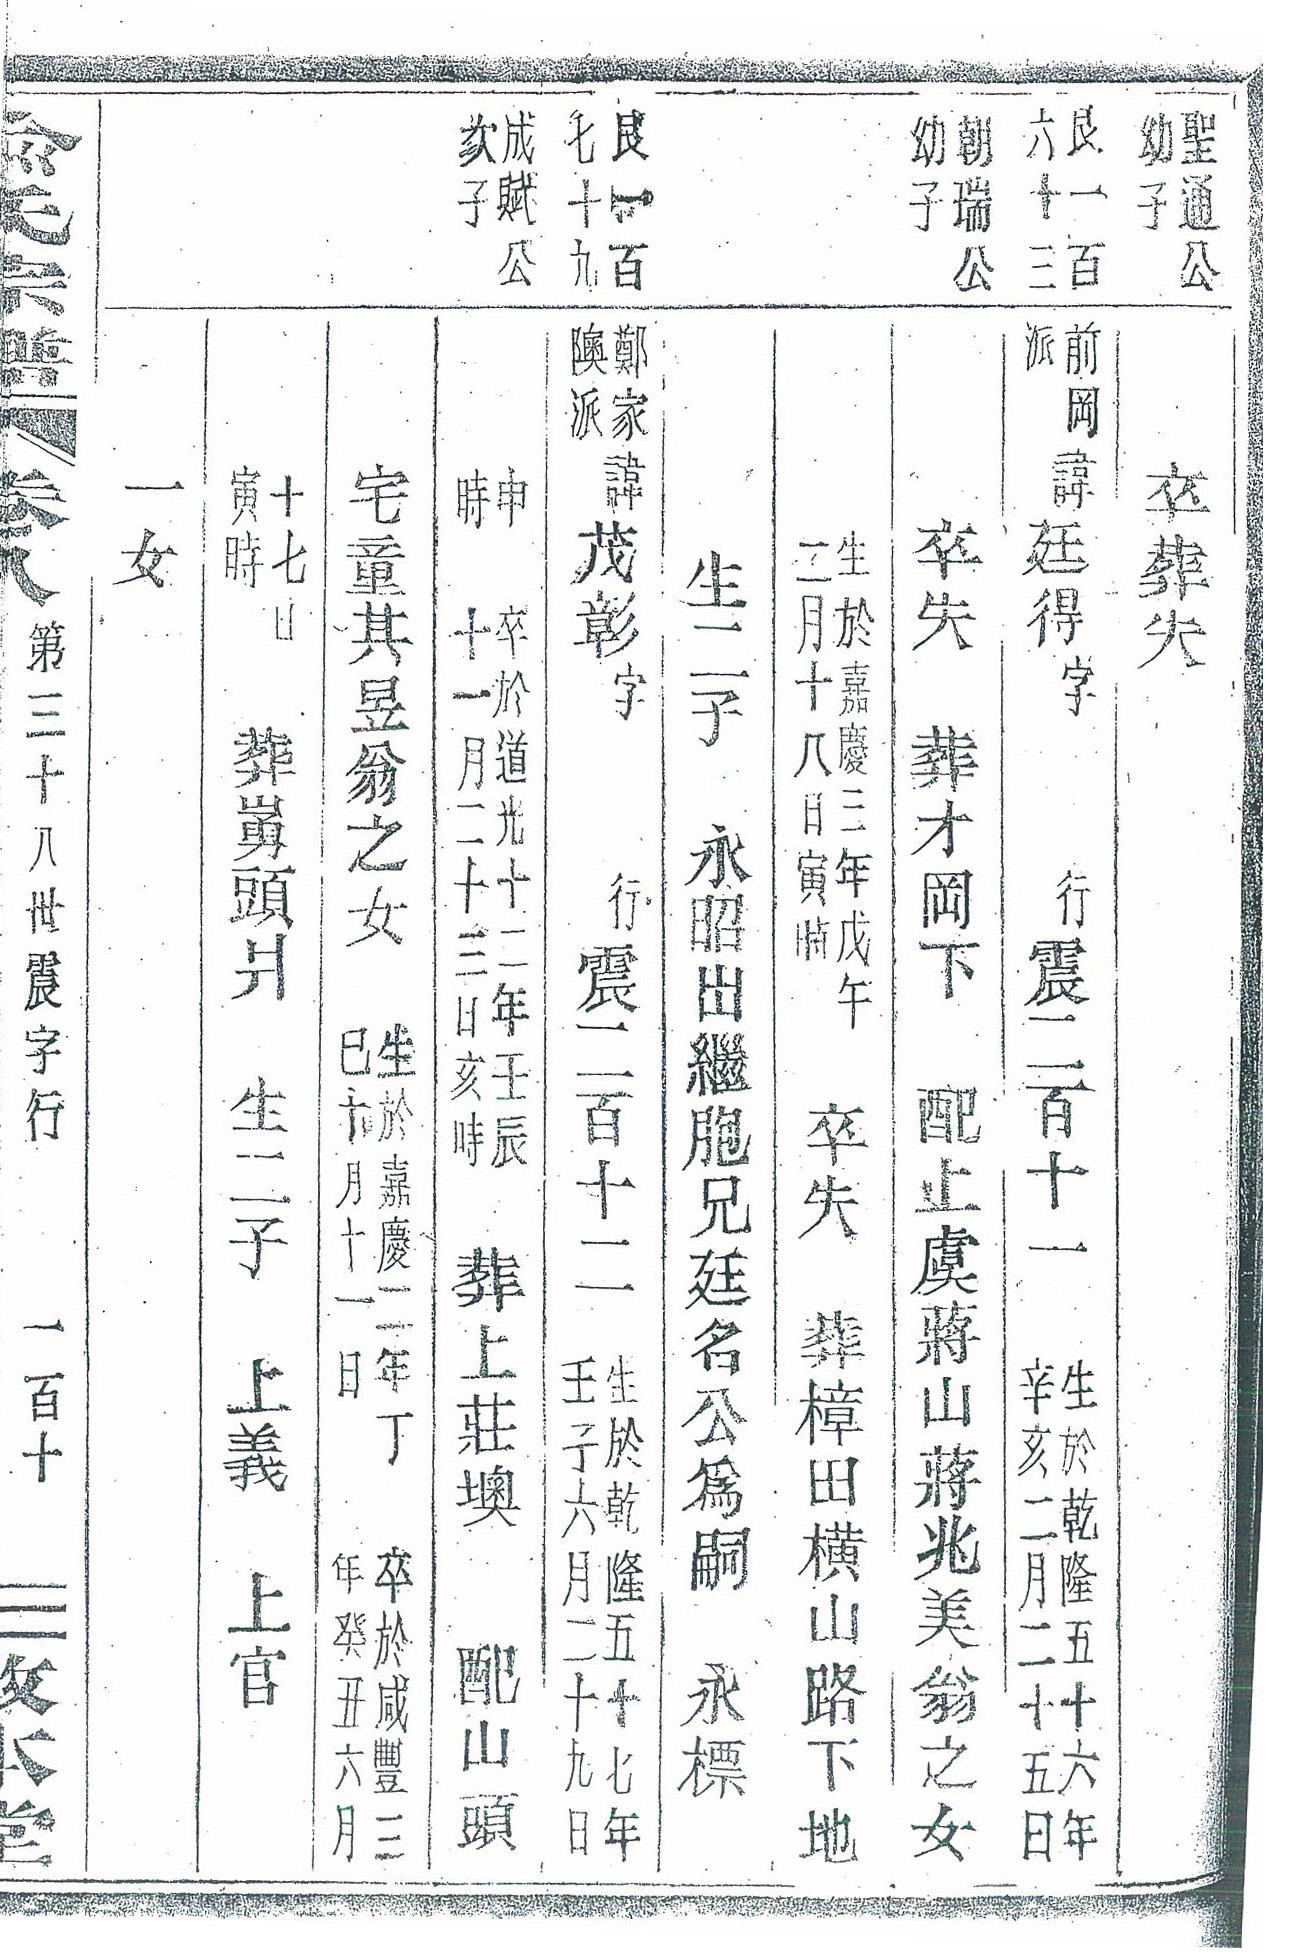 聖通公
幼子
卒葬失
艮一百
六十三
前岡
派
諱廷得字 行震二百十一
生於乾隆五十六年
辛亥二月二十五日
朝瑞公
幼子
卒失 葬才岡下 配上虞蔣山蔣兆美翁之女
生於嘉慶三年戊午
二月十八日寅時
卒失 葬樟田橫山路下地
生二子 永昭出繼胞兄廷名公爲嗣 永標
艮一百
七十九
鄭家
隩派
諱茂彰字 行震二百十二
生於乾隆五十七年
壬子六月二十九日
成賦公
次子
申
時
卒於道光十二年壬辰
十一月二十三日亥時
葬上莊墺 配山頭
宅童其昱翁之女
生於嘉慶二年丁
巳十月十一日
卒於咸豐三
年癸丑六月
十七日
寅時
葬嵎頭爿 生二子 上義 上官
一女
氏宗譜 卷八 第三十八世震字行 一百十 敦本堂